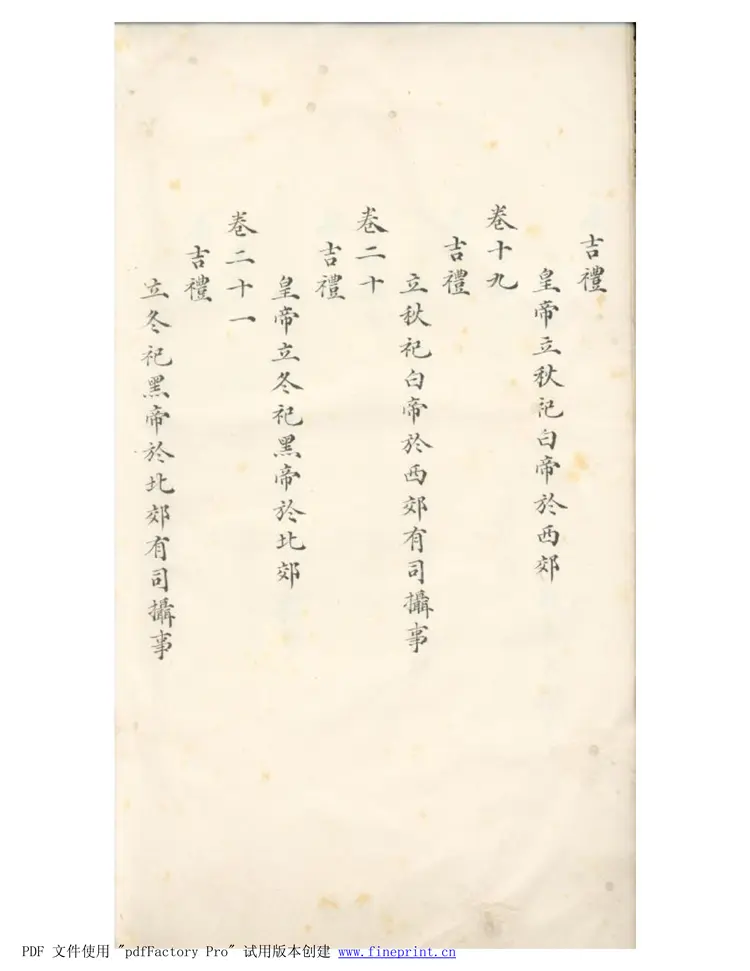 吉禮
皇帝立秋祀白帝於西郊
卷十九
吉禮
立秋祀白帝於西郊有司攝事
卷二十
吉禮
皇帝立冬祀黑帝於北郊
卷二十一
吉禮
立冬祀黑帝於北郊有司攝事
PDF 文件使用 "pdfFactory Pro" 试用版本创建 www.fineprint.cn